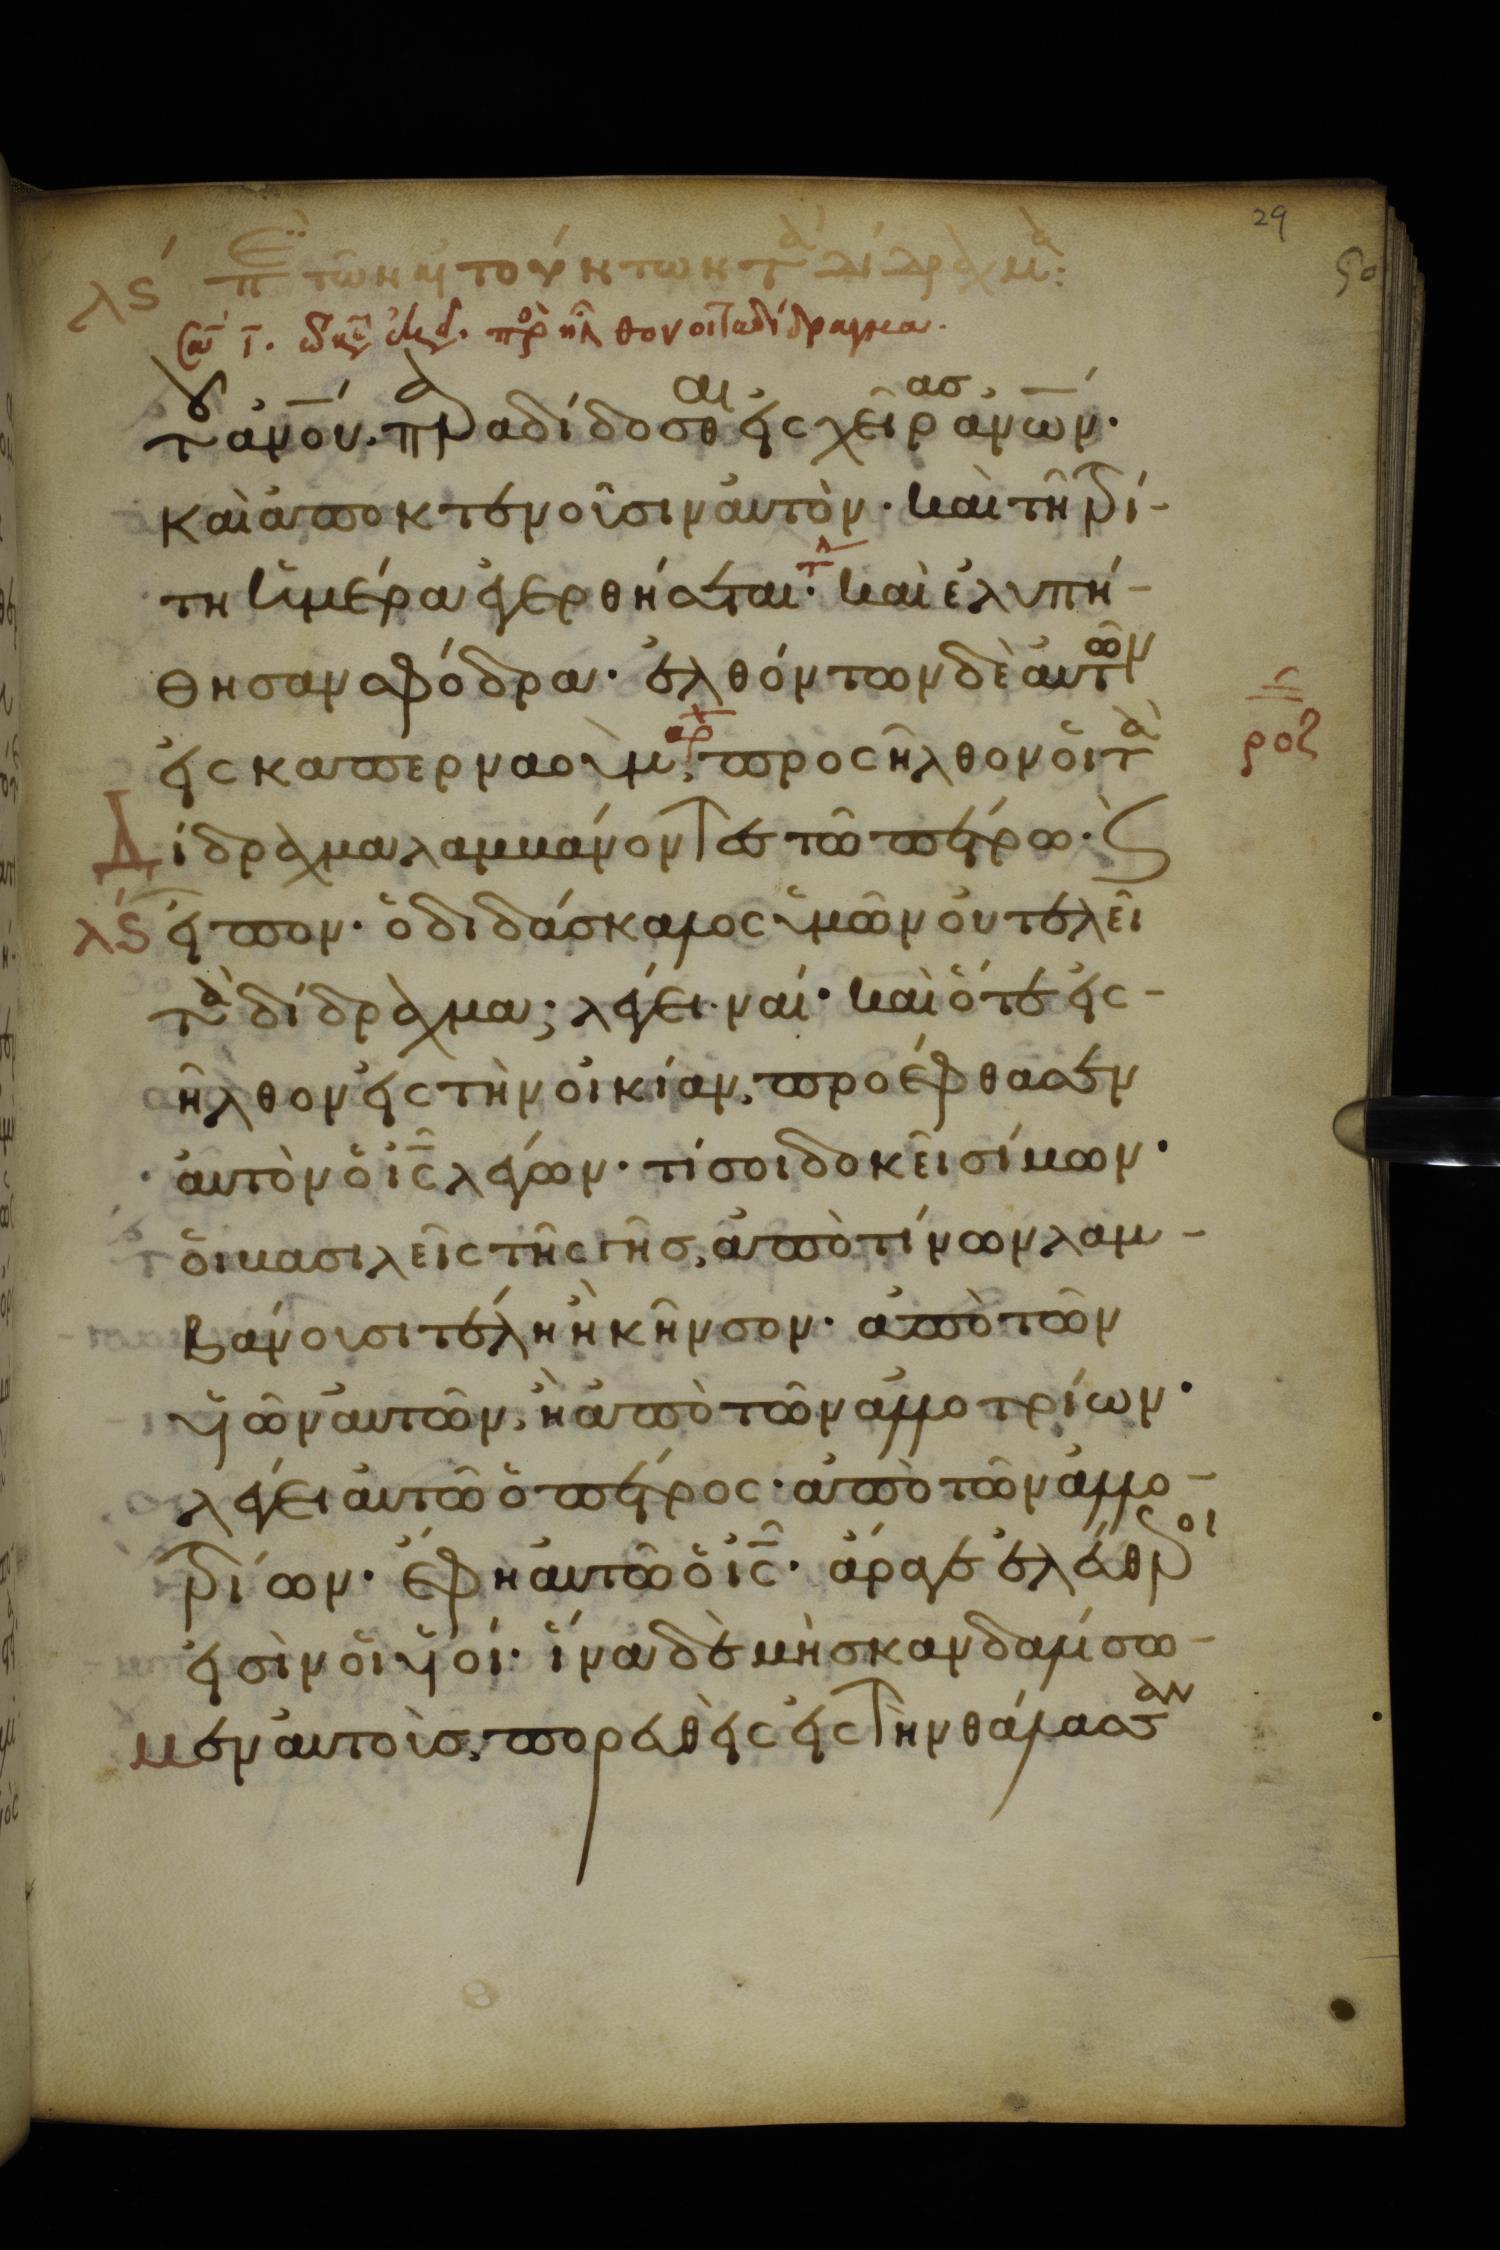 29
λς΄ περὶ τῶν αἰτούντων τὰ δίδραχμα:
προσῆλθον οἱ τὰ δίδραχμα.
τοῦ ἀν̅ο̅υ̅. παραδίδοσθαι εἰς χεῖρας ἀν̅ω̅ν̅·
καὶ ἀποκτενοῦσιν αὐτὸν· καὶ τῆ τρί-
τη ἡμέρα ἐγερθήσεται· καὶ ἐλυπή-
θησαν σφόδρα· ἐλθόντων δὲ αὐτῶν
εἰς καπερναοὺμ, προςῆλθον οἱ τὰ
δίδραχμα λαμβάνοντες τῶ πέτρω· ϛ
λς΄ εἶπον· ὁ διδάσκαλος ὑμῶν οὐ τελεῖ
ροζ
τὰ δίδραχμα; λέγει· ναί· καὶ ὅτε εἰς-
ῆλθον εἰς τὴν οἰκίαν, προέφθασεν
αὐτὸν ὁ ι̅ς̅ λέγων· τί σοι δοκεῖ σίμων·
οἱ βασιλεῖς τῆς γῆς, ἀπὸ τίνων λαμ-
βάνουσι τέλη ἢ κῆνσον· ἀπὸ τῶν
υἱῶν αὐτῶν, ἢ ἀπὸ τῶν ἀλλοτρίων·
λέγει αὐτῶ ὁ πέτρος· ἀπὸ τῶν ἀλλο-
τρίων· ἔφη αὐτῶ ὁ ι̅ς̅· ἄραγε ἐλεύθεροι
εἰσὶν οἱ υἱοί· ἵνα δὲ μὴ σκανδαλίσω-
μεν αὐτοὺς, πορευθεὶς εἰς τὴν θάλασσαν